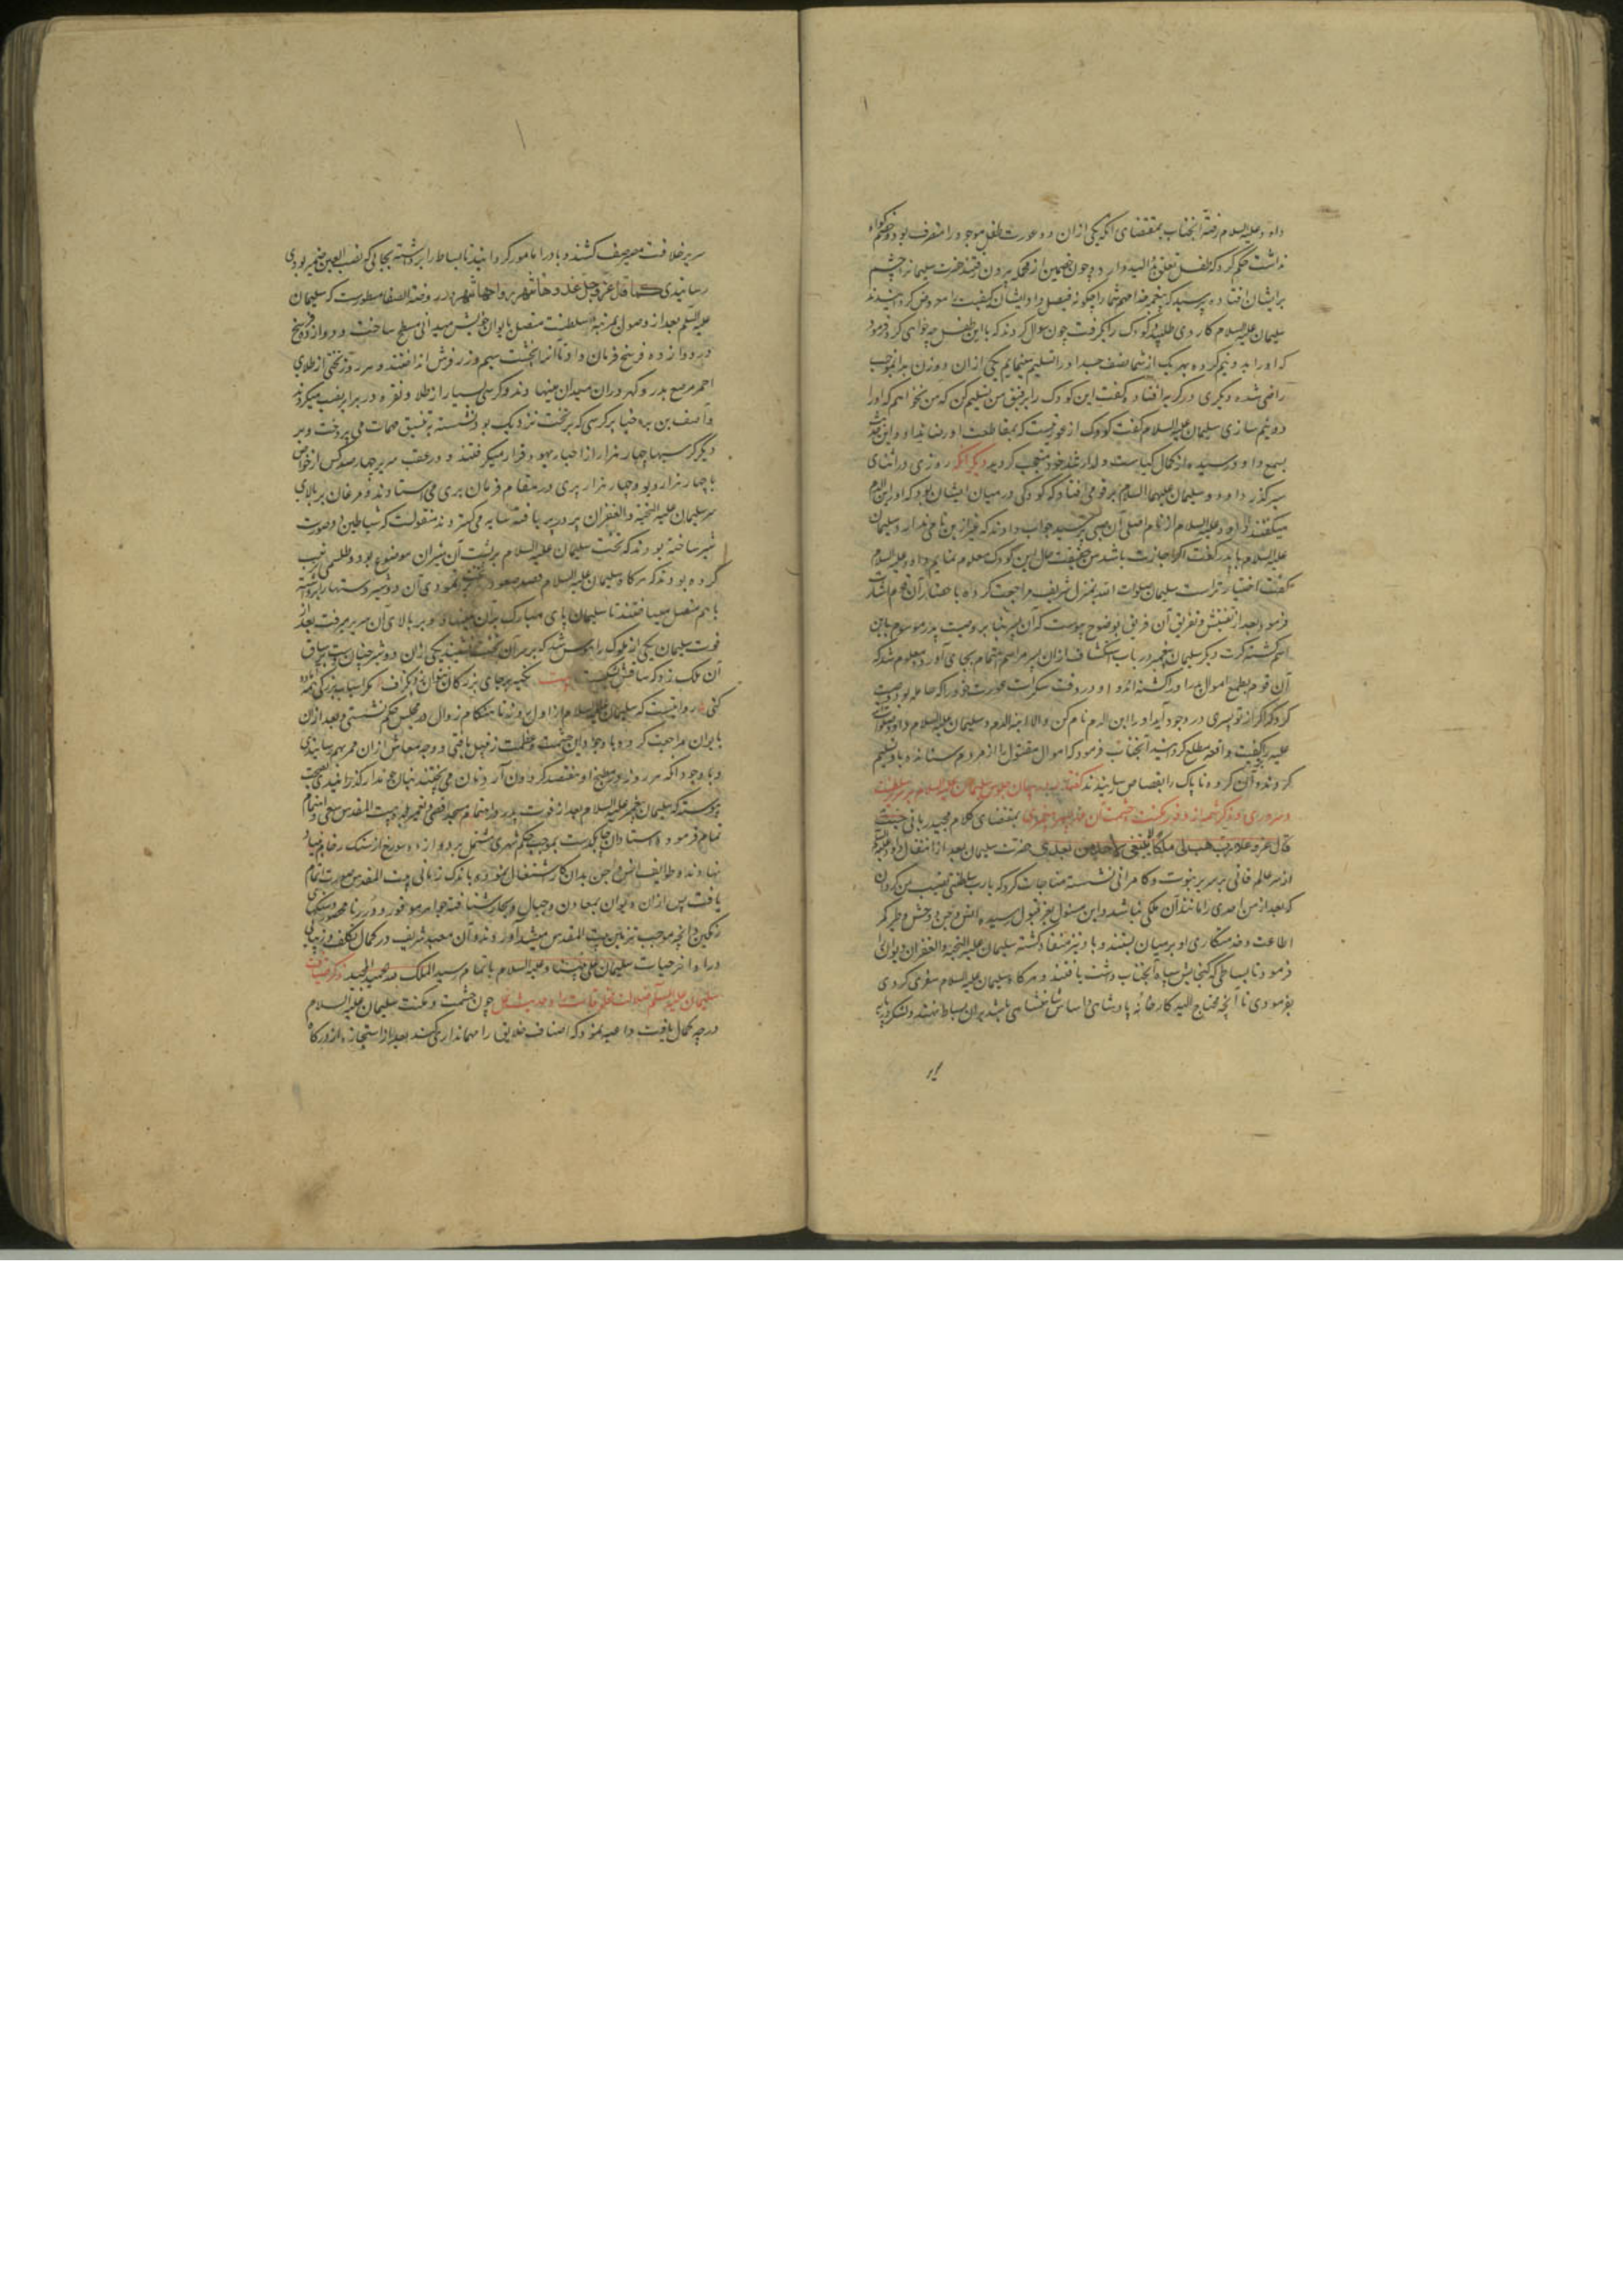 داود علیه السلام رفته آنجناب بمقتضای آنکه یکی ازان دو عورت طفل موجود را متصرف بود و خصم گواه
نداشت حکم کرد که طفل تعلق بذو الید دارد و چون خصمین از محکمه بیرون رفتند حضرت سلیمانرا چشم
برایشان افتاده پرسید که پیغمبر خدا مهم شما را چگونه فیصل داد ایشان کیفیت معروض گردانیدند
سلیمان علیه السلام کاردی طلبیده کودک را بگرفت چون سوال کردند که با این طفل چه خواهی کرد فرمود
که او را بدو نیم کرده بهر یک از شما نصف جسد او را تسلیم مینمایم یکی ازان دو زن بدانموجب
راضی شده دیگری در گریه افتاد و گفت این کودک را برفیق من تسلیم کن که من نخواهم که او را
دو نیم سازی سلیمان علیه السلام گفت کودک از عورتیست که بمقاطعت او رضا نداد و این خبر
بسمع داود رسیده از کمال کیاست ولد ارشد خود متعجب گردید دیگر آنکه روزی در اثنای
سیر گذر داود و سلیمان علیهما السلام بر قومی افتاد که کودکی در میان ایشان بود که او را ابن الدم
میگفتند داود علیه السلام از نام اصلی آن صبی پرسید جواب دادند که غیر ازین نامی ندارد سلیمان
علیه السلام با پدر گفت اگر اجازت باشد من حقیقت حال این کودک معلوم نمایم داود علیه السلام
گفت اختیار تراست سلیمان صلوات الله بمنزل شریف مراجعت کرده باحضار آن قوم اشارت
فرمود و بعد از تفتیش و تفریق آن فریق بوضوح پیوست که آن پسر بنا بر وصیت پدر موسوم باین
اسم گشته کرت دیگر سلیمان پیغمبر در باب انکشاف ازان سر مراسم اهتمام بجای آورده معلوم شد که
آن قوم بطمع اموال پدر او را کشته‌اند و او در وقت سکرات عورت خود را که حامله بود وصیت
کرد که اگر از تو پسری در وجود آید او را ابن الدم نام کن و الا ابنة الدم و سلیمان علیه السلام داود صلوات
علیه را بر کیفیت واقعه مطلع گردانید آنجناب فرمود که اموال مقتول را از مردم ستانده باو تسلیم
کردند و آن گروه ناپاک را بقصاص رسانیدند گفتار در بیان جلوس سلیمان علیه السلام بر سریر سلطنت
و سروری و ذکر شمه از وفور مکنت و حشمت آن بمقتضای کلام مجید ربانی حیث
قال عز و علا رب هب لی ملکا لا ینبغی لاحد من بعدی حضرت سلیمان بعد از انتقال داود علیه السلام
از سر عالم فانی بر سریر نبوت و کامرانی نشسته مناجات کرد که یا رب سلطنتی نصیب من گردان
که بعد از من احدی را مانند آن ملکی نباشد و این مسئول بعز قبول رسیده انس و جن و وحش و طیر کمر
اطاعت و خدمتکاری او بر میان بستند و باد نیز منقاد گشته سلیمان علیه التحیة و الغفران دیوانرا
فرمود تا بساطی که گنجایش سپاه آنجناب داشت بافتند و هرگاه سلیمان علیه السلام سفری کردی
بفرمودی تا آنچه محتاج الیه کارخانه پادشاهی و اساس شاهنشاهی باشد بران بساط نهند و لشکریان
سریر خلافت مصیر صف کشند و باد را مامور گردانیدند تا بساط را برداشته بجائی که نصب العین ضمیر بودی
رسانیدی کما قال عز و جل غدوها شهر و رواحها شهر در روضة الصفا مسطورست که سلیمان
علیه السلام بعد از وصول بمرتبه سلطنت متصل بایوان خویش میدانی مسطح ساخت دوازده فرسخ
در دوازده فرسخ و فرمان داد تا آنرا بخشت سیم و زر فرش انداختند و هر روز تختی از طلای
احمر مرصع بدر و گهر دران میدان مینهادند و کرسی بسیار از طلا و نقره در برابر نصب میکردند
و آصف بن برخیا بر کرسی که بر تخت نزدیک بود نشسته بتنسیق مهمات می پرداخت و بر
دیگر کرسیها چهار هزار از احبار یهود قرار میگرفتند و در عقب سریر چهار صد کس از خواص
با چهار هزار دیو و چهار هزار پری در مقام فرمان بری می‌ایستادند و مرغان بر بالای
سر سلیمان علیه التحیة و الغفران پر در پر بافته سایه می‌گستردند منقولست که شیاطین دو صورت
شیر ساخته بودند که تخت سلیمان علیه السلام بر پشت آن شیران موضوع بود و طلسمی ترتیب
کرده بودند که هر گاه سلیمان علیه السلام قصد صعود بر تخت نمودی آن دو شیر دستها برداشته
باهم متصل میساختند تا سلیمان پای مبارک بران مینهاد و بر بالای آن سریر میرفت بعد از
فوت سلیمان یکی از ملوک را هوس شد که بر سر آن تخت نشیند یکی ازان دو شیر چنان دست بر ساق
آن ملک زد که ساقش شکست بیت تکیه بر جای بزرگان نتوان زد بگزاف مگر اسباب بزرگی همه آماده
کنی روایتست که سلیمان علیه السلام از اول روز تا هنگام زوال در مجلس حکم نشستی و بعد ازان
بایوان مراجعت کردی و با وجود این حشمت و عظمت زنبیل بافتی و وجه معاش ازان ممر بهم رسانیدی
و با وجود آنکه هر روز در مطبخ او هفتصد گردون آرد نان می پختند بنان جو ندار گذرانیدی بصحت
پیوسته که سلیمان پیغمبر علیه السلام بعد از فوت پدر در اتمام مسجد اقصی و تعمیر بلده بیت المقدس سعی و اهتمام
تمام فرمود و استادان چابکدست بموجب حکم شهری مشتمل بر دوازده سور از سنگ رخام بنیاد
نهادند و طوایف انس و جن بدان کار اشتغال نموده باندک زمانی بیت المقدس صورت اتمام
یافت پس ازان دیوان بمعادن و جبال و بحار شتافته جواهر موفور و درر نامحصور و سنگهای
رنگین و آنچه موجب تزیین بیت المقدس میشد آوردند و آن معبد شریف در کمال تکلف و زیبائی
در اواخر حیات سلیمان علی نبینا و علیه السلام باتمام رسید الملک لله الحمید المجید ذکر ضیافت
سلیمان علیه السلام چون حشمت و مکنت سلیمان علیه السلام
درجه کمال یافت داعیه نمود که اصناف خلایق را مهمانداری کند بعد از استجازه از درگاه